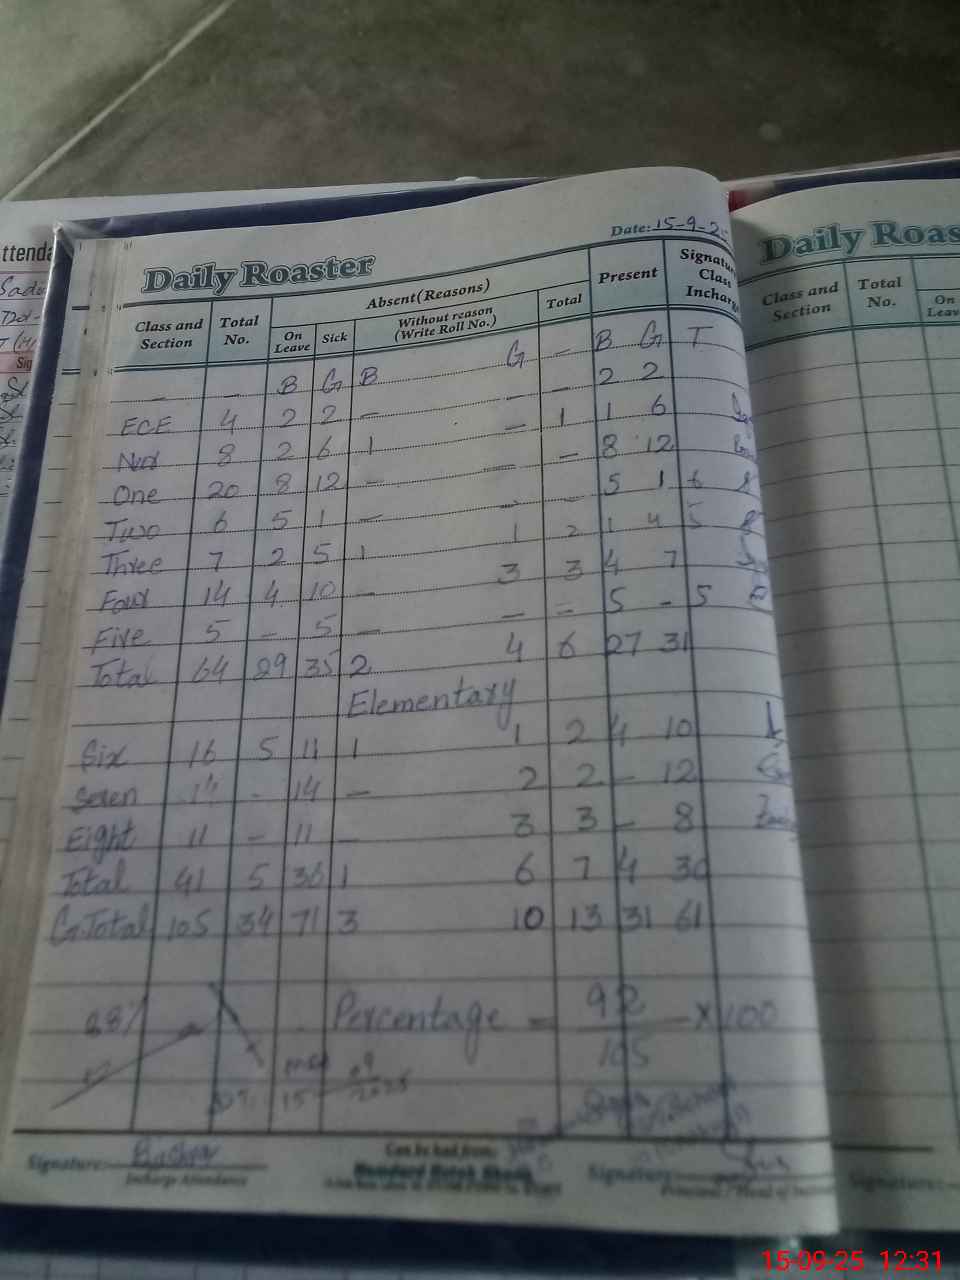 Daily Roaster
Date: 15-9-25
Class and Section Total No. Absent(Reasons) Present Signature Class Incharge
On Leave Sick Without reason (Write Roll No.) Total
— — B G B G — B G T
ECE 4 2 2 – — – 2 2
Nur 8 2 6 1 – 1 1 6
One 20 8 12 – — – 8 12
Two 6 5 1 – – – 5 1 6
Three 7 2 5 1 1 2 1 4 5
Four 14 4 10 – 3 3 4 7
Five 5 – 5 – – = 5 – 5
Total 64 29 35 2 4 6 27 31
Elementary
Six 16 5 11 1 1 2 4 10
Seven 14 – 14 – 2 2 – 12
Eight 11 – 11 – 3 3 – 8
Total 41 5 36 1 6 7 4 30
G.Total 105 34 71 3 10 13 31 61
Percentage = 92 × 100
105
88%
15 09 2025
Signature:
Incharge Attendance
Can be had from:
Signature:
Daily Roas
Class and Section Total No. On Leave
Signature:
ttenda
15-09-25 12:31